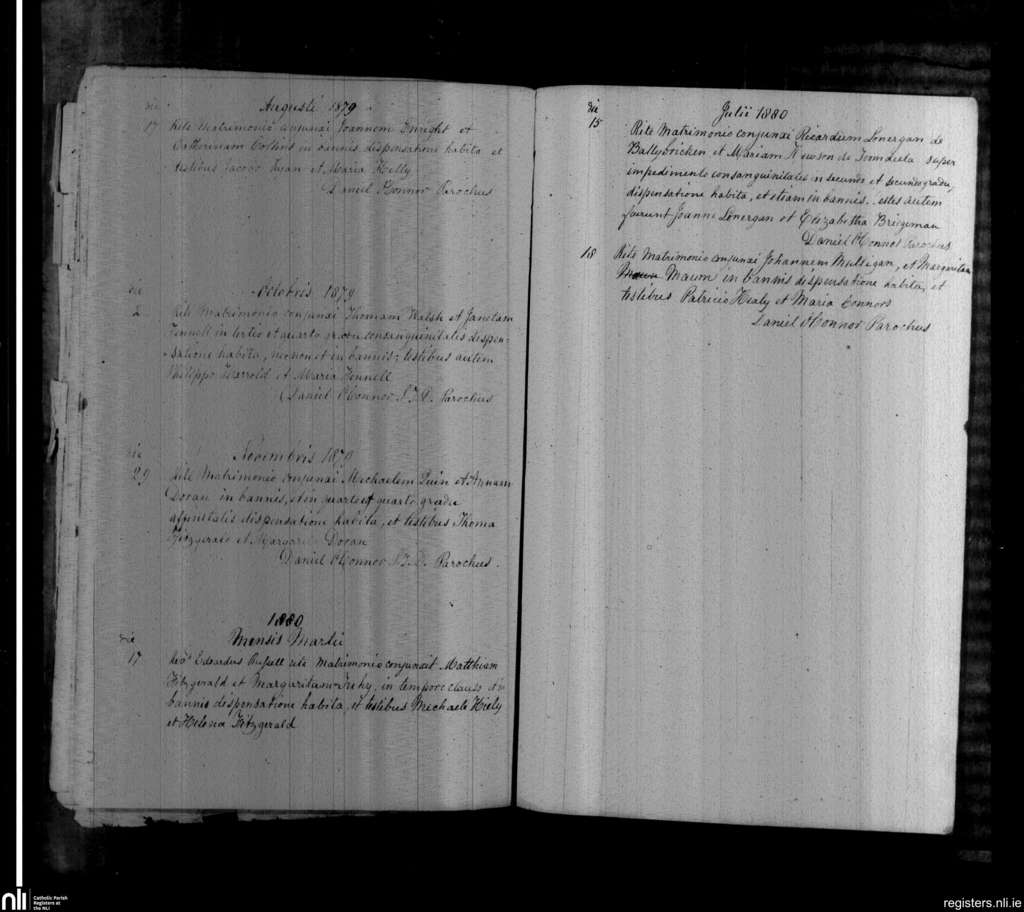 Augusti 1879
die
17 Rite Matrimonio conjunxi Joannem Enright et
Catherinam Collins in bannis dispensatione habita et
testibus Jacobo et Maria Kelly
Daniel O'Connor Parochus
Octobris 1879
die
2 Rite Matrimonio conjunxi Thomam Walsh et
Fennell in tertio et quarto gradu consanguinitatis dispen-
satione habita, necnon et in bannis; testibus autem
Philippo Harrold et Maria Fennell
Daniel O'Connor S.T.D. Parochus
Novembris 1879
die
29 Rite Matrimonio conjunxi Michaelem Quin et Annam
Doran in bannis, et in quarto et quarto gradu
affinitatis dispensatione habita, et testibus Thoma
Fitzgerald et Margarita Doran
Daniel O'Connor S.T.D. Parochus.
1880
Mensis Martii
die
17 Revd Edoardus Russell rite Matrimonio conjunxit Matthiam
Fitzgerald et Margaritam in tempore clauso et in
bannis dispensatione habita, et testibus Michaele Hiely
et Helena Fitzgerald
Julii 1880
die
15 Rite Matrimonio conjunxi Ricardum Lonergan de
Ballybricken et Mariam Hewson de Tomdeela super
impedimento consanguinitatis in secundo et secundo gradu,
dispensatione habita, et etiam in bannis. Testes autem
fuerunt Joanne Lonergan et Elizabetha Bridgeman
Daniel O'Connor Parochus
18 Rite Matrimonio conjunxi Johannem Mulligan, et Margaritam
Maum in bannis dispensatione habita, et
testibus Patricio Healy et Maria Connors
Daniel O'Connor Parochus
nli
Catholic Parish
Registers at
the NLI
registers.nli.ie